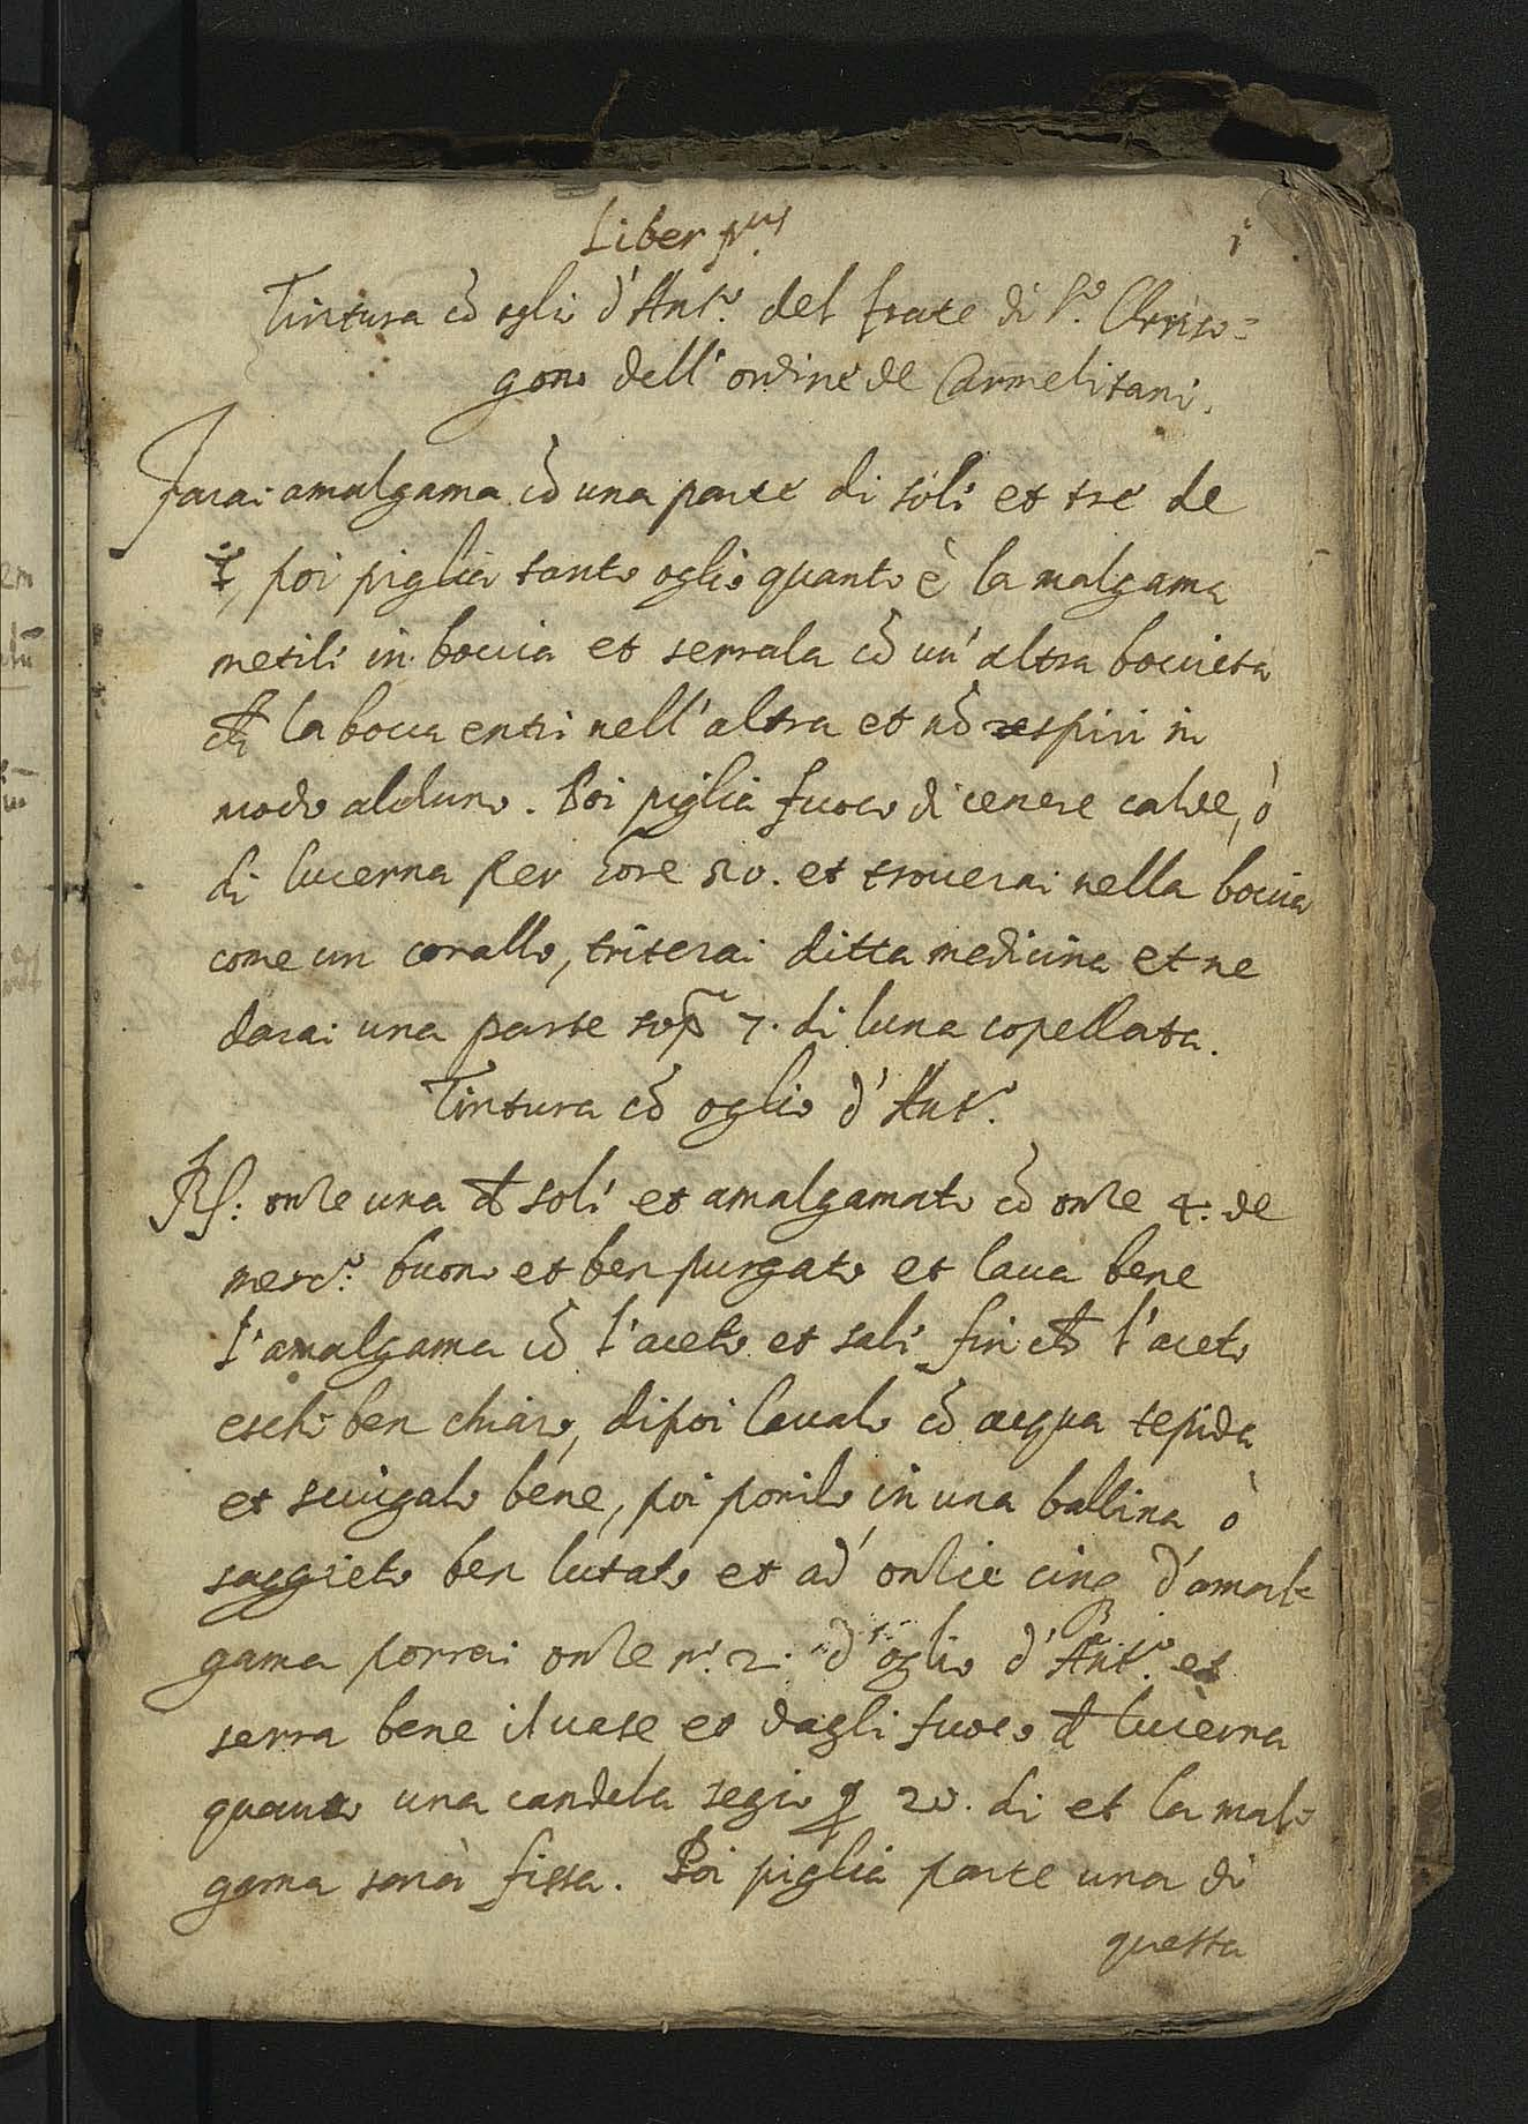 Liber pus
i
Tintura cō oglio d'Anto. del frate di So. Chriso=
gono dell'ordine de Carmelitani.
Farai amalgama cō una parte di soli et tre de
☿, poi piglia tanto oglio quanto è la malgama
metili in boccia et serrala cō un'altra boccieta
la bocca entri nell'altra et nō respiri in
modo alcluno. Poi piglia fuoco di cenere calde, ò
di lucerna per hore et trouerai nella boccia
come un corallo, triterai ditta medicina et ne
darai una parte sop̄ 7. di luna copellata.
Tintura cō oglio d'Anto.
Rx: onze una di soli et amalgamato cō onze 4. de
merco. buono et ben purgato et laua bene
l'amalgama cō l'aceto et sali fin ch l'aceto
eschi ben chiaro, dipoi laualo cō acqua tepida
et sciugalo bene, poi ponilo in una bollina ò
saggieto ben lutato et ad' onzie cinq d'amal=
gama porrai onze no. 2. d'oglio d'Anto. et
serra bene il uase et dagli fuoco di lucerna
quanto una candela segio p 20. di et la mal=
gama sarà fissa. Poi piglia parte una di
questa